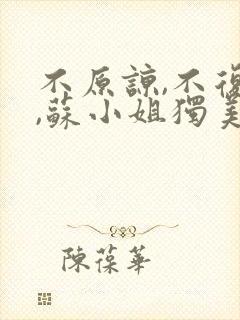 不原諒,不復
,蘇小姐獨美
陳葆華